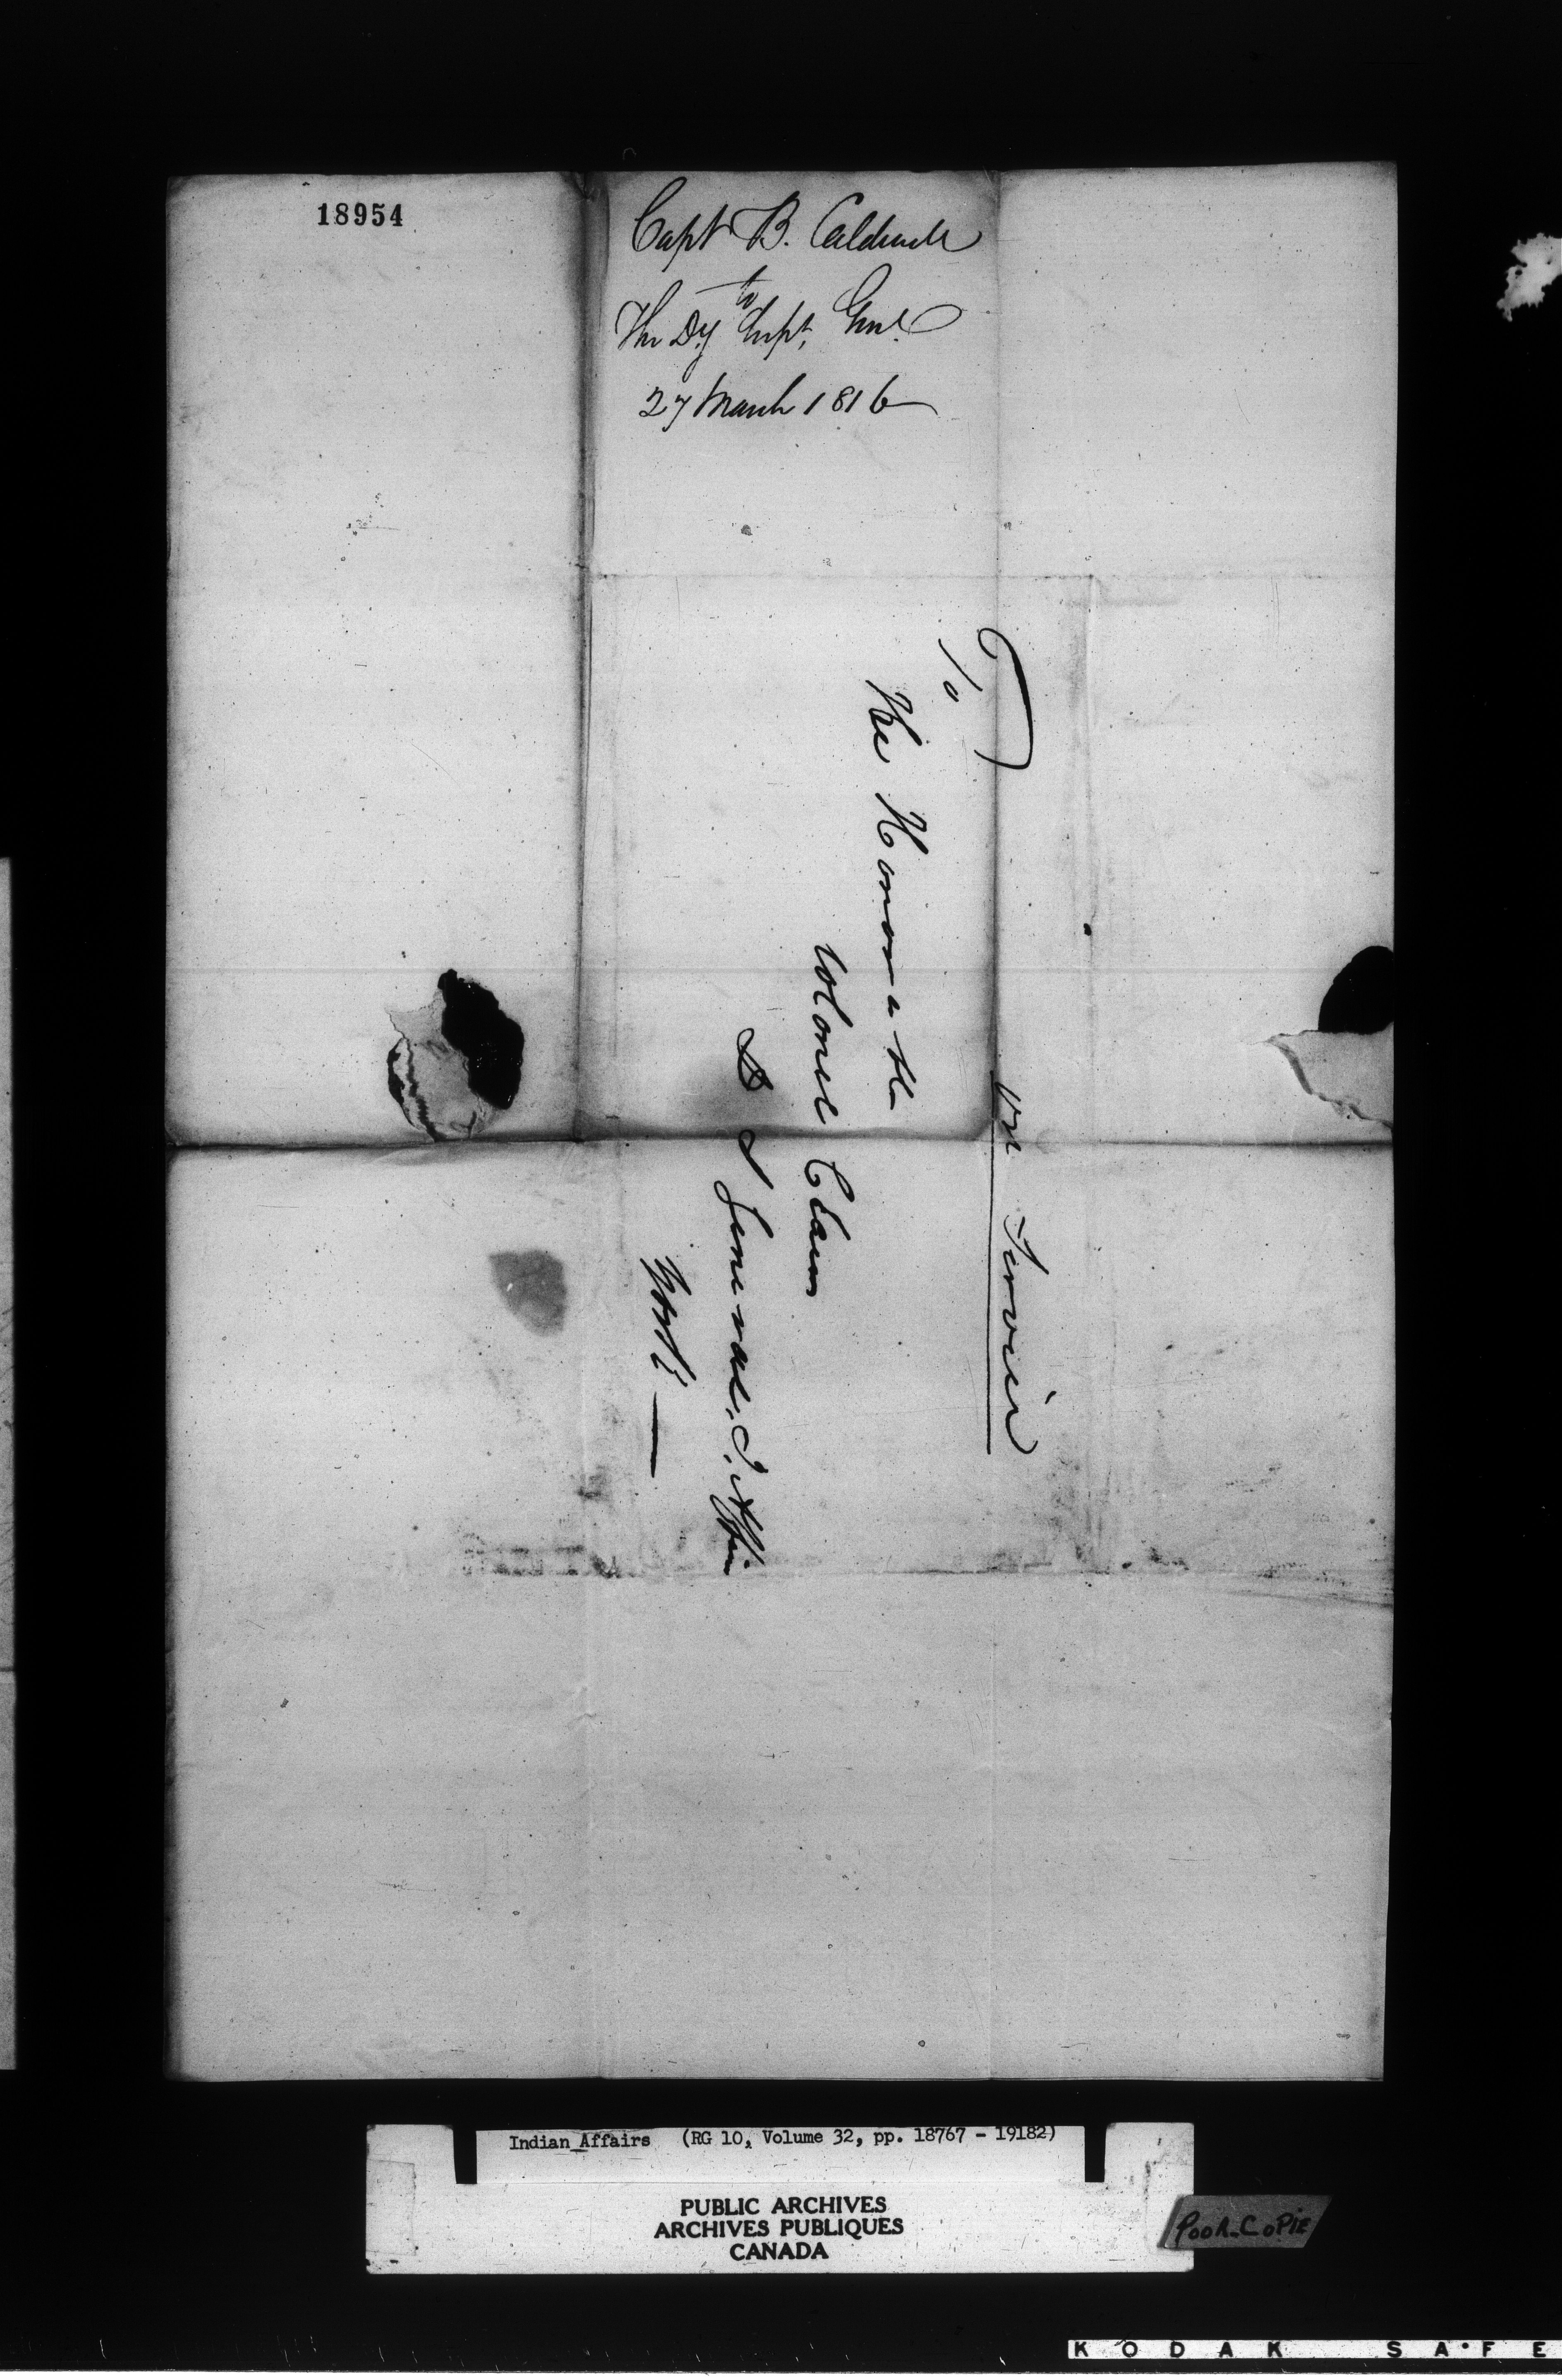 18954
Capt B. Caldwell
to
The Dy Supt. Genl.
27 March 1816
on Service
To
The Honorable
Colonel Claus
D S General, I, Affairs
York —
Indian Affairs (RG 10, Volume 32, pp. 18767 - 19182)
PUBLIC ARCHIVES
ARCHIVES PUBLIQUES
CANADA
POOR COPIE
KODAK SAFE